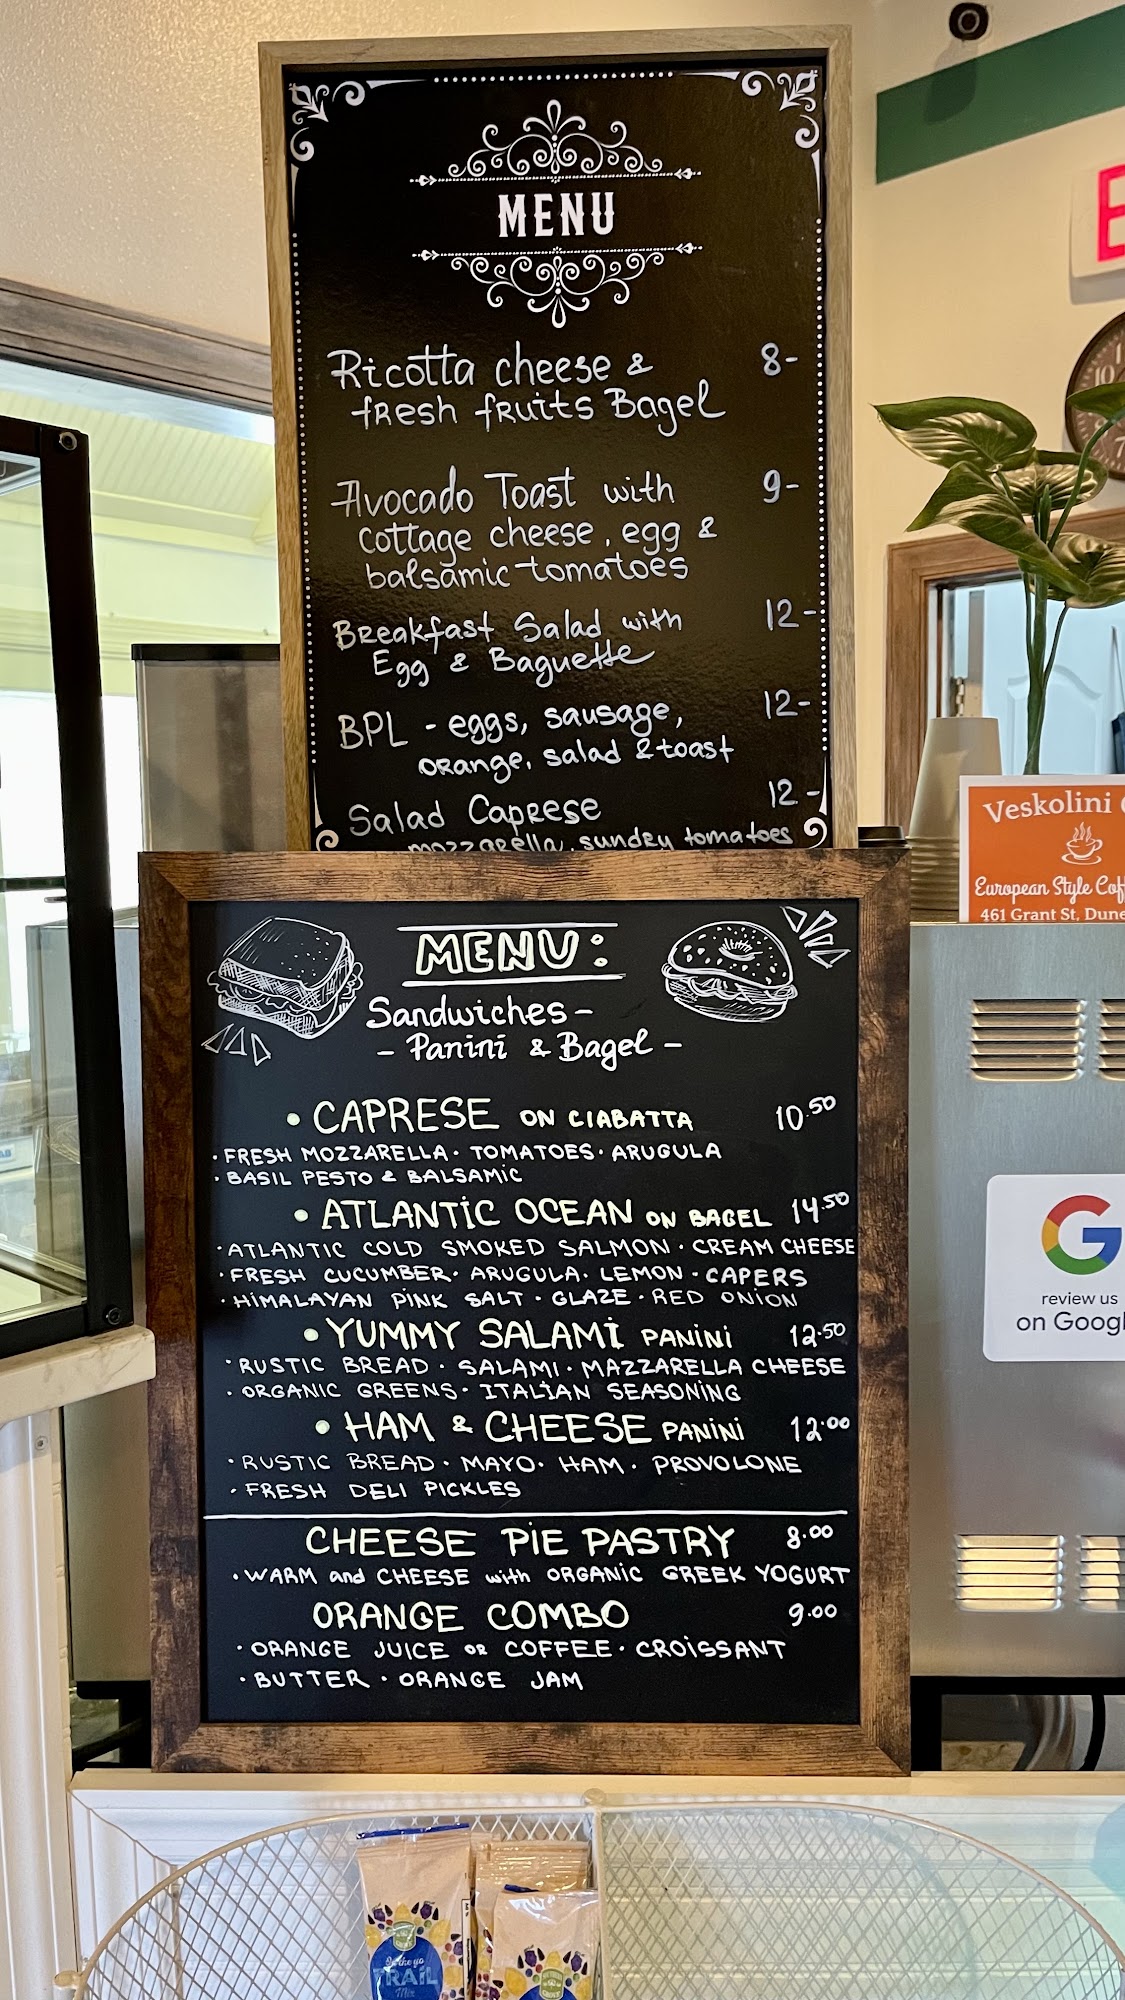 MENU
Ricotta cheese & 8-
fresh fruits Bagel
Avocado Toast with 9-
cottage cheese, egg &
balsamic tomatoes
Breakfast Salad with 12-
Egg & Baguette
BPL - eggs, sausage, 12-
orange, salad & toast
Salad Caprese 12-
mozzarella, sundry tomatoes
MENU:
Sandwiches -
- Panini & Bagel -
• CAPRESE ON CIABATTA 10.50
· FRESH MOZZARELLA · TOMATOES · ARUGULA
· BASIL PESTO & BALSAMIC
• ATLANTIC OCEAN ON BAGEL 14.50
· ATLANTIC COLD SMOKED SALMON · CREAM CHEESE
· FRESH CUCUMBER · ARUGULA · LEMON · CAPERS
· HIMALAYAN PINK SALT · GLAZE · RED ONION
• YUMMY SALAMI PANINI 12.50
· RUSTIC BREAD · SALAMI · MAZZARELLA CHEESE
· ORGANIC GREENS · ITALIAN SEASONING
• HAM & CHEESE PANINI 12.00
· RUSTIC BREAD · MAYO · HAM · PROVOLONE
· FRESH DELI PICKLES
CHEESE PIE PASTRY 8.00
· WARM and CHEESE with ORGANIC GREEK YOGURT
ORANGE COMBO 9.00
· ORANGE JUICE OR COFFEE · CROISSANT
· BUTTER · ORANGE JAM
Veskolini
European Style Cof
461 Grant St, Dune
G
review us
on Googl
On the go
TRAIL
Mix